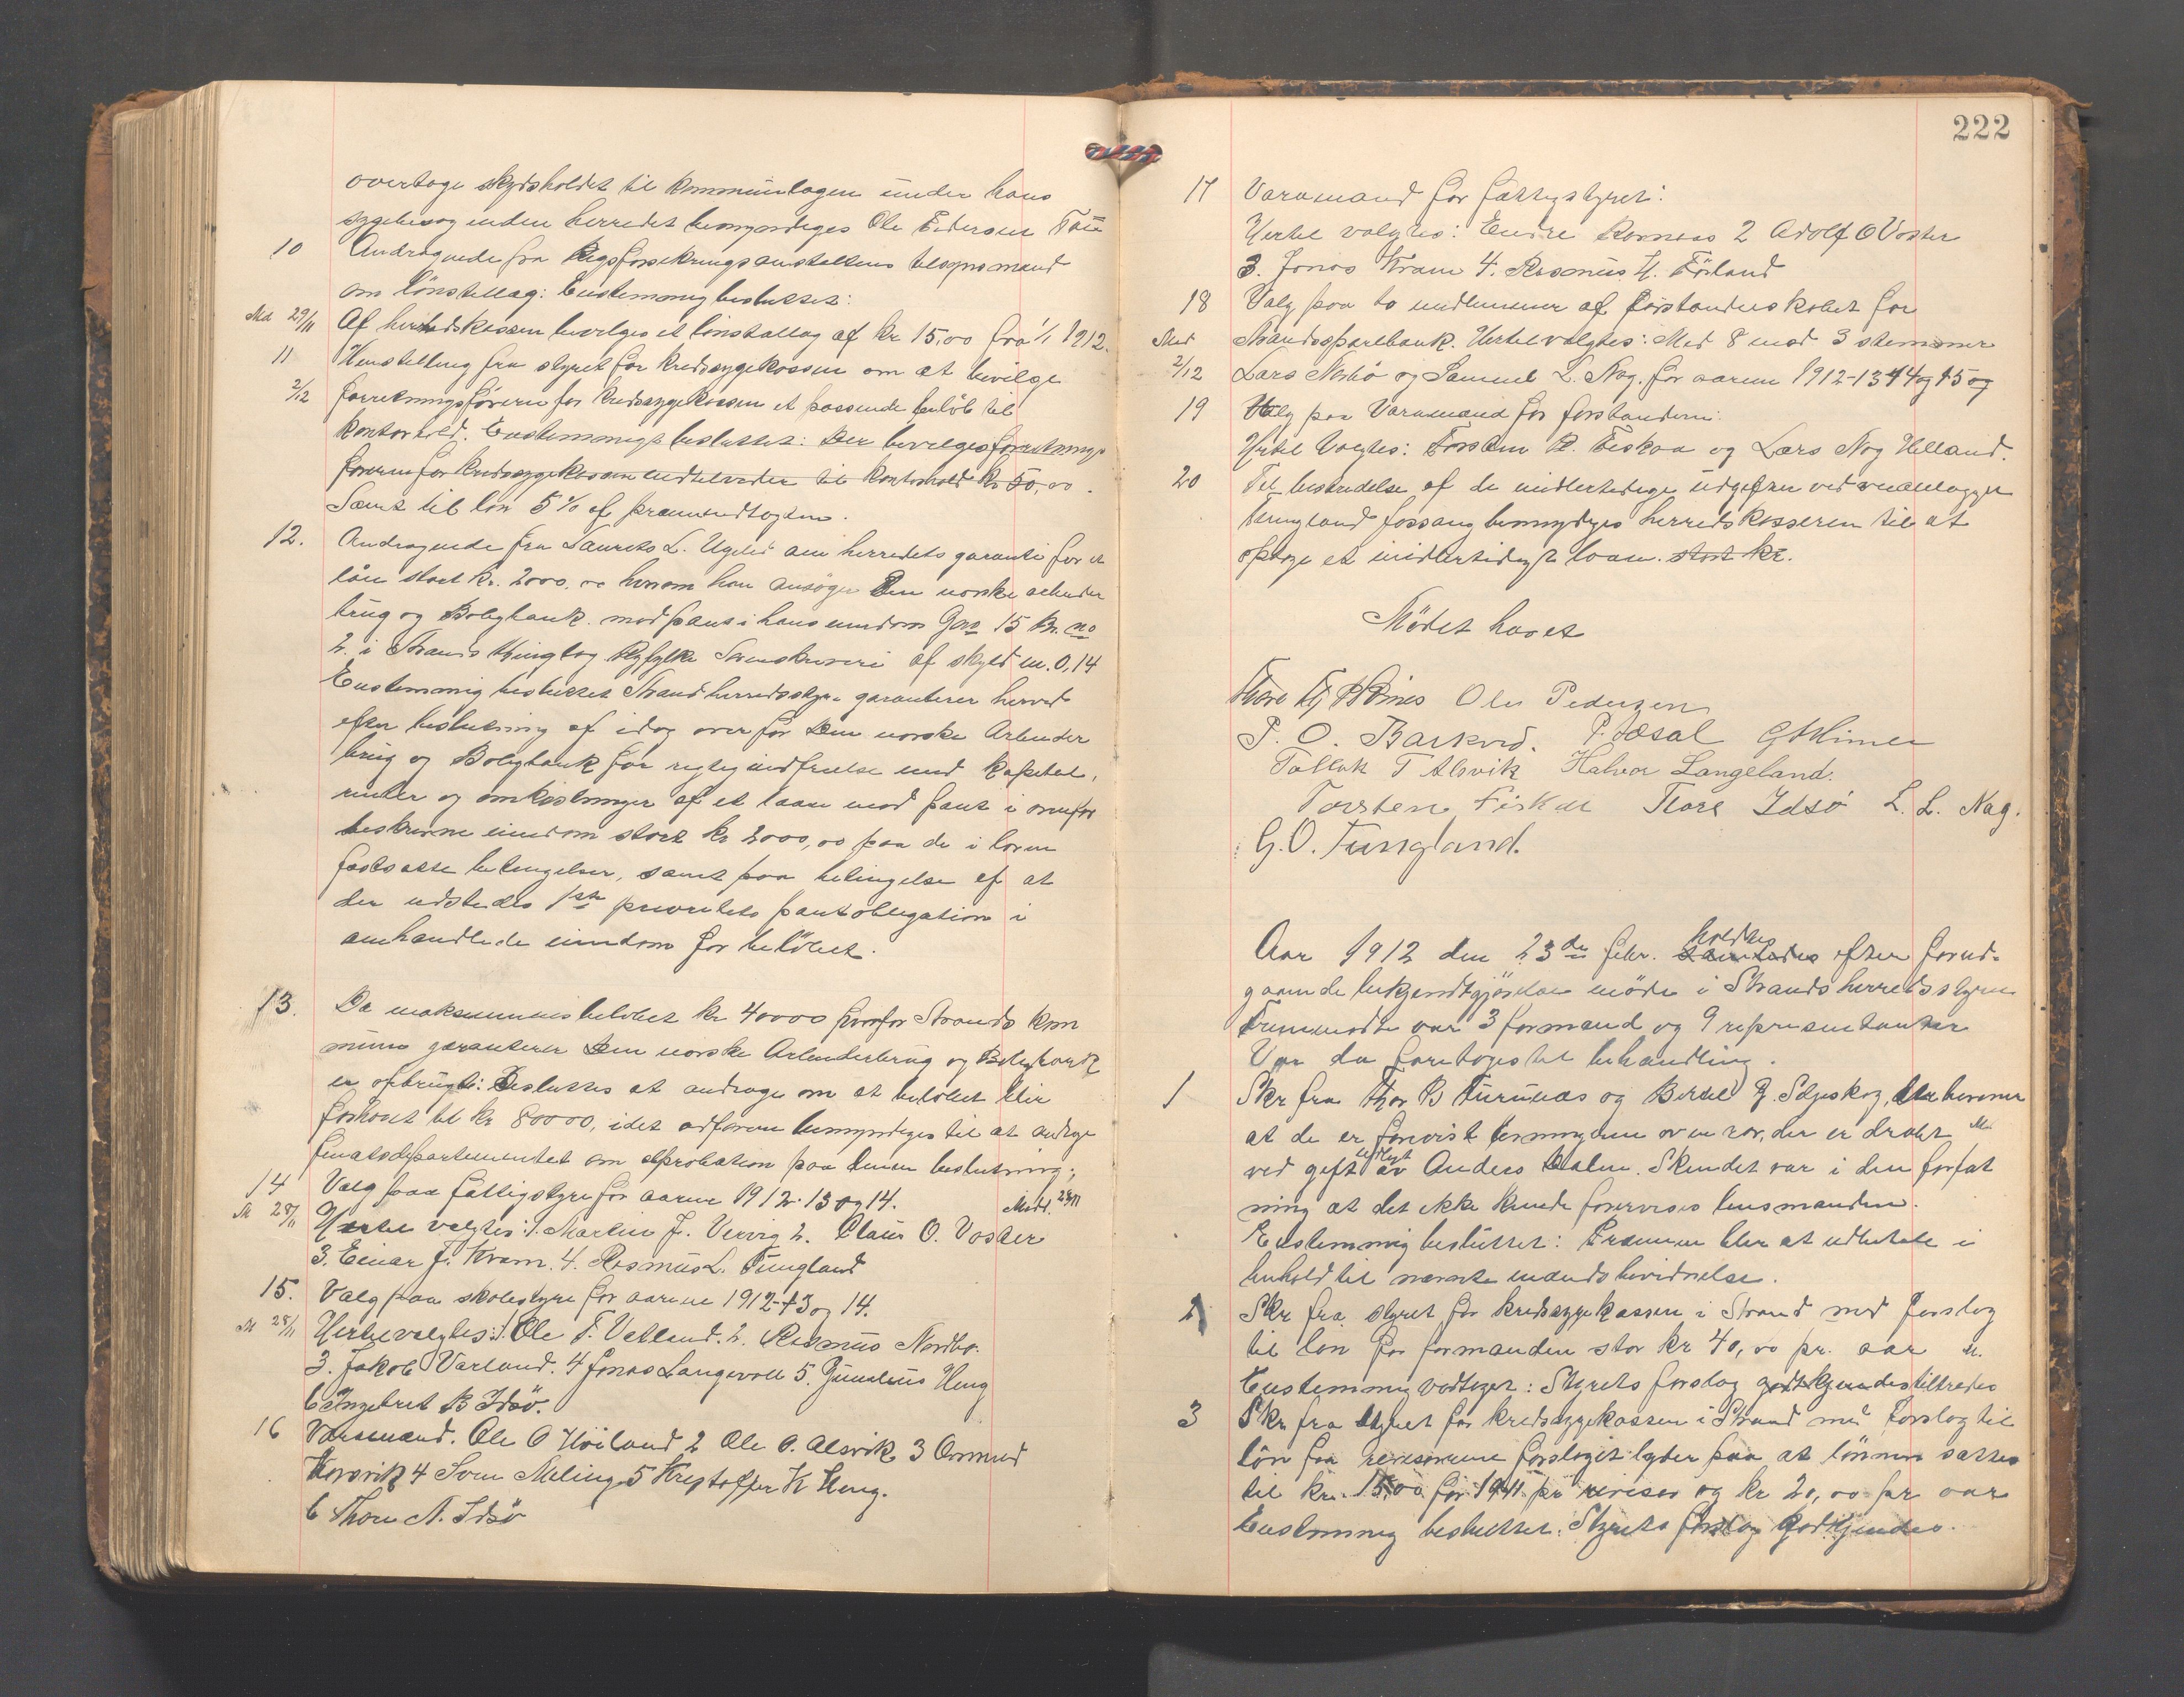 overtage skydsholdet til kommunlægen under hans
sygebesøg inden herredet bemyndiges Ole Pedersen Tau
10 Andragende fra Rigsforsikringsanstaltens tilsynsmand
om lönstillæg: Enstemmig besluttet:
Md 29/11 Af herredskassen bevilges et lönstillæg af kr 15,00 fra 1/1 1912.
11 Henstilling fra styret for kredssygekassen om at bevilge
2/12 forretningsföreren for kredssygekassen et passende belöb til
kontorhold. Enstemmigt besluttet: Der bevilges forretnings
föreren for kredssygekassen indtilvidere til kontorhold kr 50,00.
Samt til lön 5 % af præmieindtægten.
12. Andragende fra Laurits L. om herredets garanti for et
lån stort kr. 2000,00 hvorom han ansøger Den norske arbeider
brug og Boligbank mod pant i hans eiendom Gno 15 Br. no
2. i Strands thinglag Ryfylke Sorenskriveri af skyld m. 0,14
Enstemmig besluttet Strand herredsstyre garanterer herved
efter beslutning af idag overfor Den norske Arbeider
brug og Boligbank for rigtig indfrielse med kapital,
renter og omkostninger af et laan mod pant i ovenfor
beskrevne eiendom stort kr 2000,00 paa de i loven
fastsatte betingelser, samt paa betingelse af at
der udstedes 1ste prioritets pantobligation i
omhandlede eiendom for belöbet.
13. Da maksimumsbelöbet kr 40000 hvorfor Strands kom
mune garanterer Den norske Arbeiderbrug og Boligbank
er opbrugt: Besluttes at andrage om at belöbet blir
forhöiet til kr 80000, idet ordføreren bemyndiges til at andrage
finansdepartementet om approbation paa denne beslutning;
14 Valg paa fattigstyre for aarene 1912-13 og 14.
M 28/11 Hertil valgtes: 1. Martin J. Vervig 2. Claus O. Voster
3. Einar J. Kvam. 4. Rasmus L. Tungland
15. Valg paa skolestyre for aarene 1912-13 og 14.
M 28/11 Hertil valgtes: 1. Ole T. Vatland. 2. Rasmus Nordbø.
3. Jakob Varland. 4 Jonas Langevoll 5. Gundius Heng
6 Ingebret B Idsöv.
16 Varamænd. Ole O Höiland 2 Ole O. Alsvik 3 Ommund
4 Sven Meling 5 Kristoffer K Heng.
6 Thore N. Idsö
222
17 Varamænd for fattigstyret:
Hertil valgtes: Endre 2 Adolf O Voster
3. Jonas Kvam 4. Rasmus H. Förland
18 Valg paa to medlemmer af forstanderskabet for
Med Strands sparebank. Hertil valgtes: Med 8 mod 3 stemmer
2/12 Lars Nesbö og Samuel L. Nag. for aarene 1912-13 14 og 15
19 Valg paa Varamænd for forstanderne:
Hertil Valgtes: Torsten R. Fiskaa og Lars Nag Helland.
20 Til bestridelse af de midlertidige udgifter ved veianlægget
Tungland fossang bemyndiges herredskassereren til at
optage et midlertidigt laan. stort kr.
Mödet hævet
Ole Pedersen
P. O. Barkved. P. Tæsal G. A. Himle
Tollak T Alsvik Halvor Langeland.
Torsten Fiskaa Tore Idsö L. L. Nag.
G. O. Tungland.
Aar 1912 den 23de febr. holdtes efter forud-
gaaende bekjendtgjörelse möde i Strands herredsstyre
Fremmødte var 3 formænd og 9 repræsentanter
Var da foretages til behandling.
1 Skr fra Thor B Furunæs og Bertel G. Sdgeskog, der bevner
at de er forevist en ræv, der er dræbt
ved gift udlagt av Anders Dalen. Skindet var i den forfat
ning at det ikke kunde forevises lensmanden.
Enstemmig besluttet: Præmien blir at udbetale i
henhold til nævnte mænds bevidnelse.
2 Skr fra styret for kredssygekassen i Strand med forslag
til lön for formanden stor kr 40,00 pr. aar
Enstemmig vedtaget: Styrets forslag godtkjendes tiltrædes
3 Skr fra styret for kredssygekassen i Strand med forslag til
lön for revisorerne forslaget lyder paa at lönnen sættes
til kr. 15,00 for 1911 pr revisor og kr 20,00 pr aar
Enstemmig besluttet: Styrets forslag godkjendes.